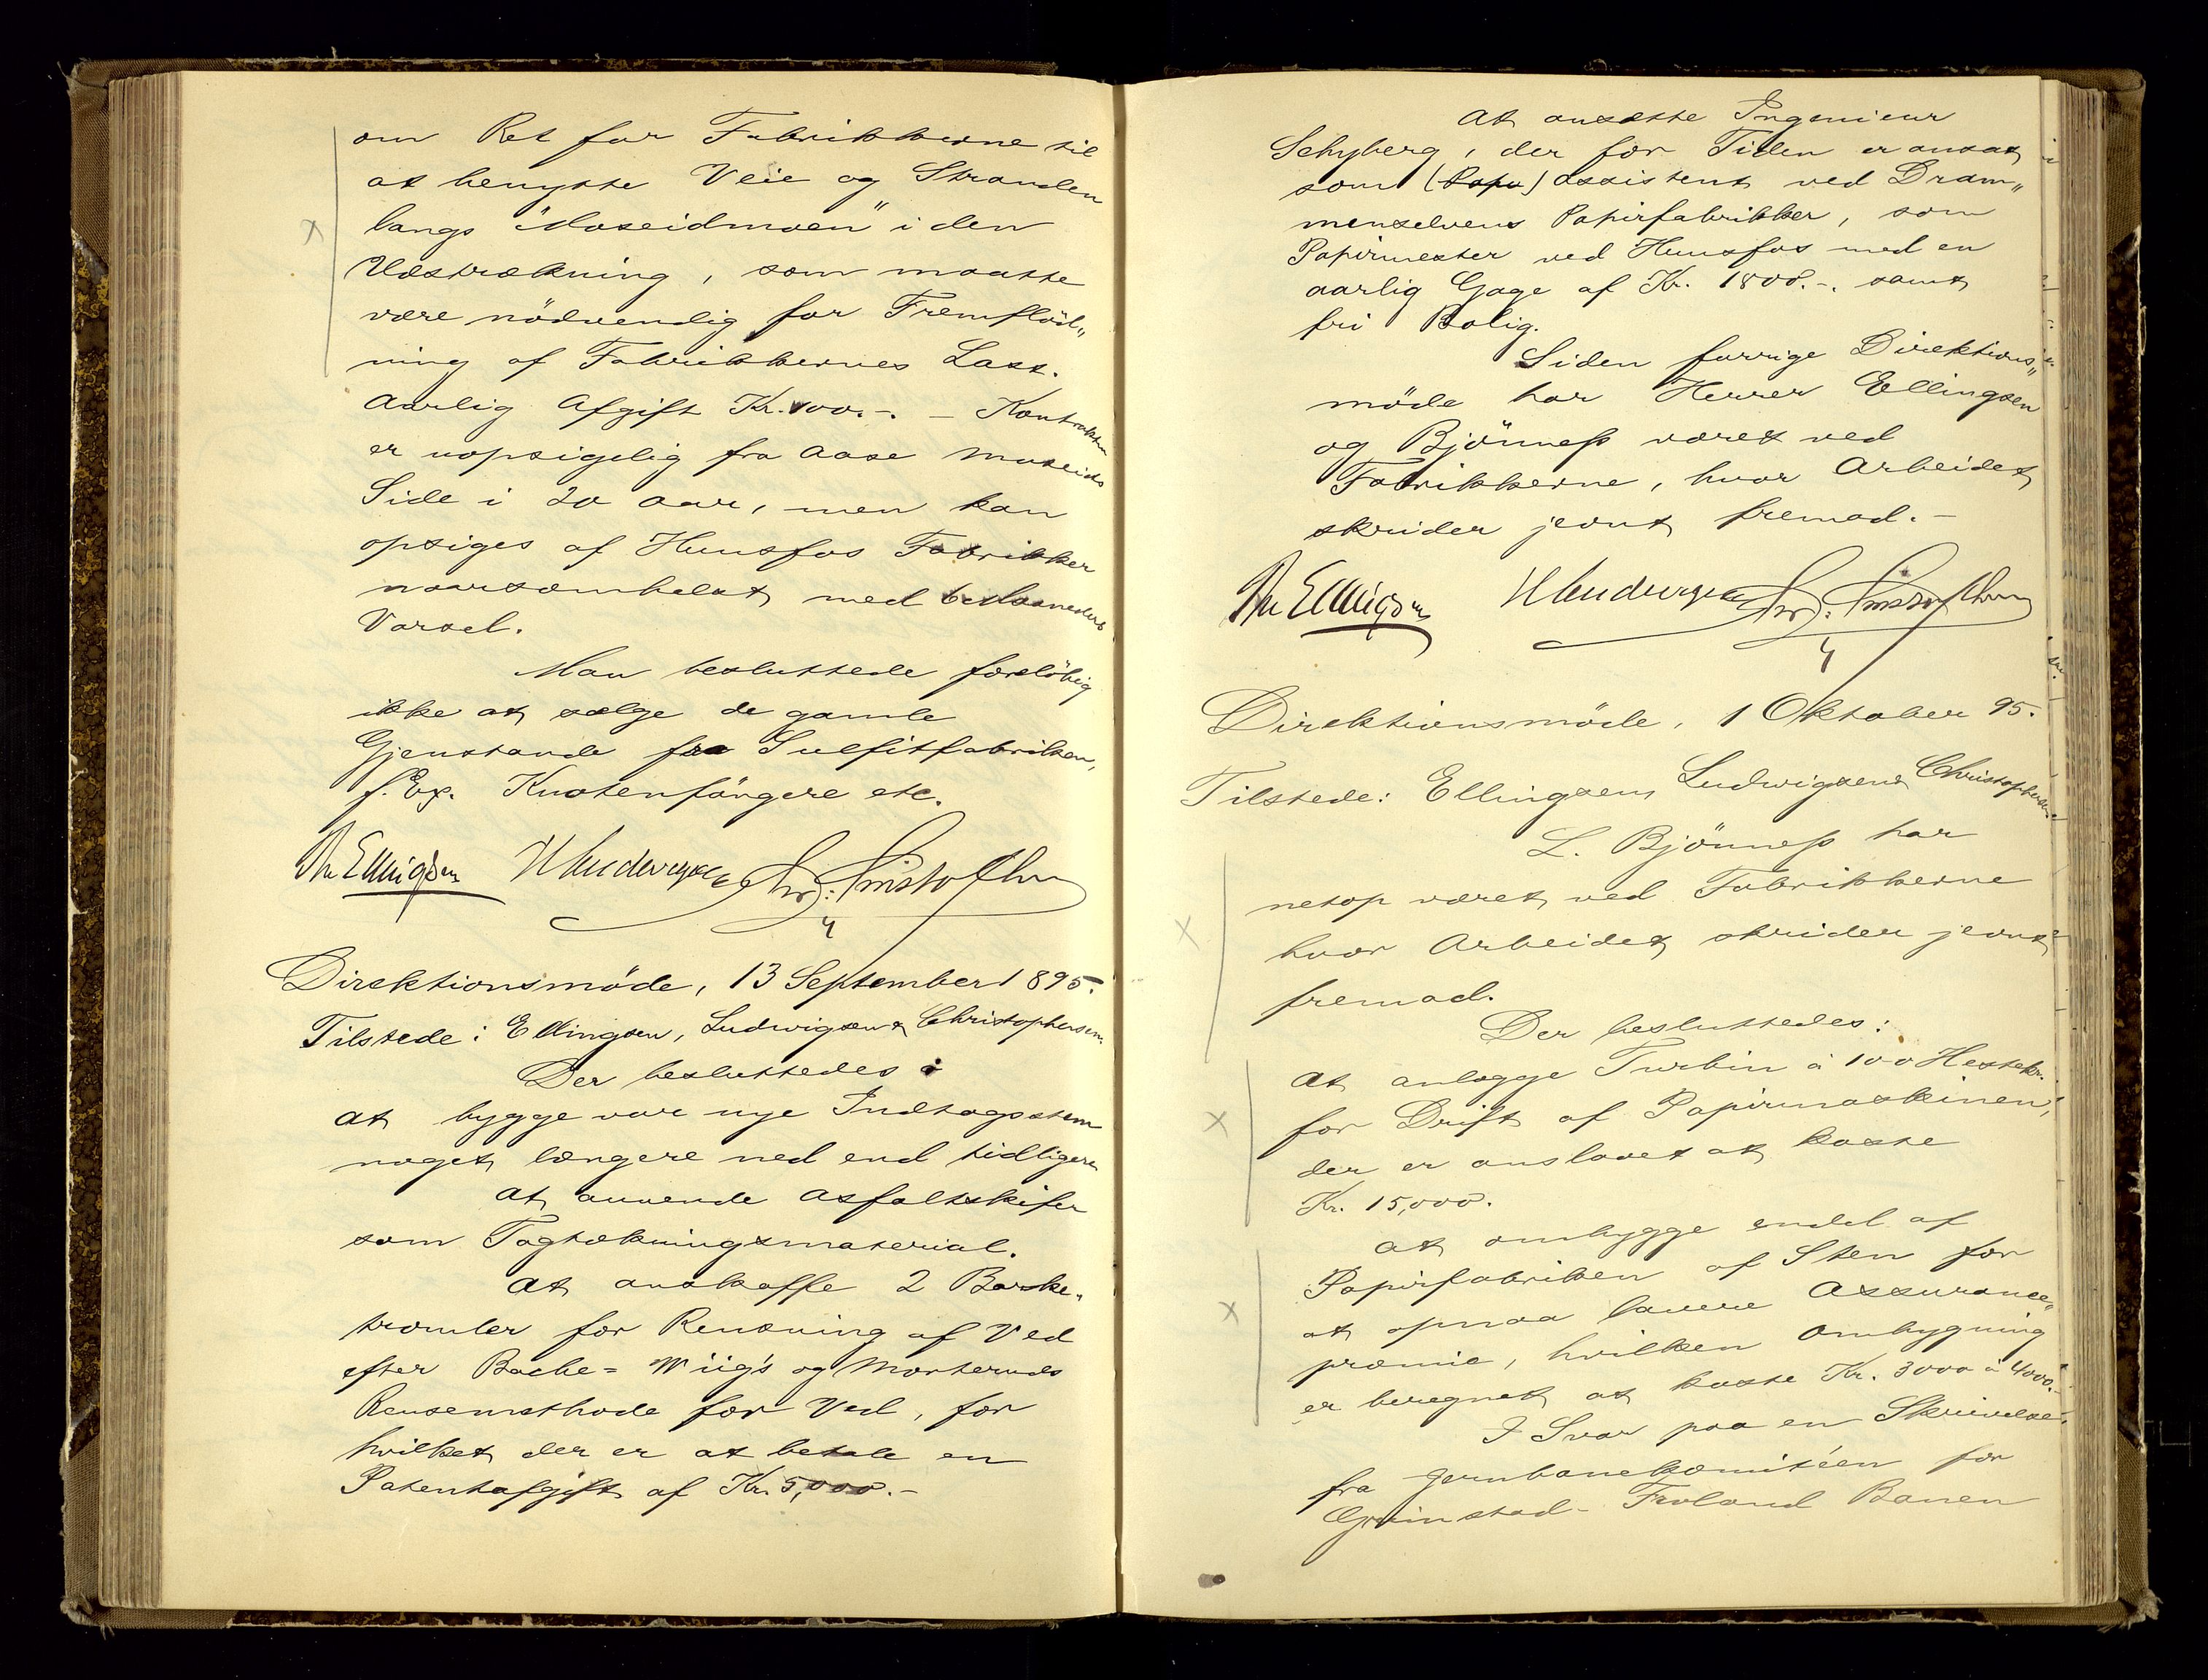 om Ret for Fabrikkerne til
at benytte Veie og Stranden
langs "Moseidmoen" i den
Udstrækning, som maatte
være nödvendig for Fremflöd„
ning af Fabrikkernes Last.
Aarlig Afgift Kr. 100.-. – Kontrakten
er uopsigelig fra Aase Moseids
Side i 20 Aar, men kan
opsiges af Hunsfos Fabrikker
naarsomhelst med 6 Maaneders
Varsel.
Man besluttede foreløbig
ikke at sælge de gamle
Gjenstande fra Sulfitfabriken,
f. Ex. Knotenfängere etc.
Ellingsen H Ludwigsen Chr. Christophersen
Direktionsmöde, 13 September 1895.
Tilstede: Ellingsen, Ludwigsen & Christophersen.
Der besluttedes:
at bygge vor nye Indtagsstem
noget længere ned end tidligere
at anvende Asfaltskifer
som Tagtækningsmaterial.
At anskaffe 2 Barke„
tromler for Rensning af Ved
efter Bache=Wiig's og Morteruds
Rensemethode for Ved, for
hvilket der er at betale en
Patentafgift af Kr. 5,000.-
At ansætte Ingeniør
Schyberg, der for Tiden er ansat
som (Papi) Assistent ved Dram„
menselvens Papirfabrikker, som
Papirmester ved Hunsfos med en
aarlig Gage af Kr. 1800.-. samt
fri Bolig.
Siden forrige Direktions„
möde har Herrer Ellingsen
og Bjönness været ved
Fabrikkerne, hvor Arbeidet
skrider jevnt fremad.-
Ellingsen H Ludwigsen Chr. Christophersen
Direktionsmöde, 1 Oktober 95.
Tilstede: Ellingsen, Ludwigsen & Christophersen.
L. Bjönness har
netop været ved Fabrikkerne
hvor Arbeidet skrider jevnt
fremad.
Der besluttedes:
At anlægge Turbin á 100 Hestekr.
for Drift af Papirmaskinen,
der er anslaaet at koste
Kr. 15,000.
at ombygge endel af
Papirfabriken af Sten for
at opnaa lavere Assurance„
præmie, hvilken Ombygning
er beregnet at koste Kr. 3000 á 4000.-
I Svar paa en Skrivelse
fra Jernbanekomitéen for
Grimstad- Froland Banen